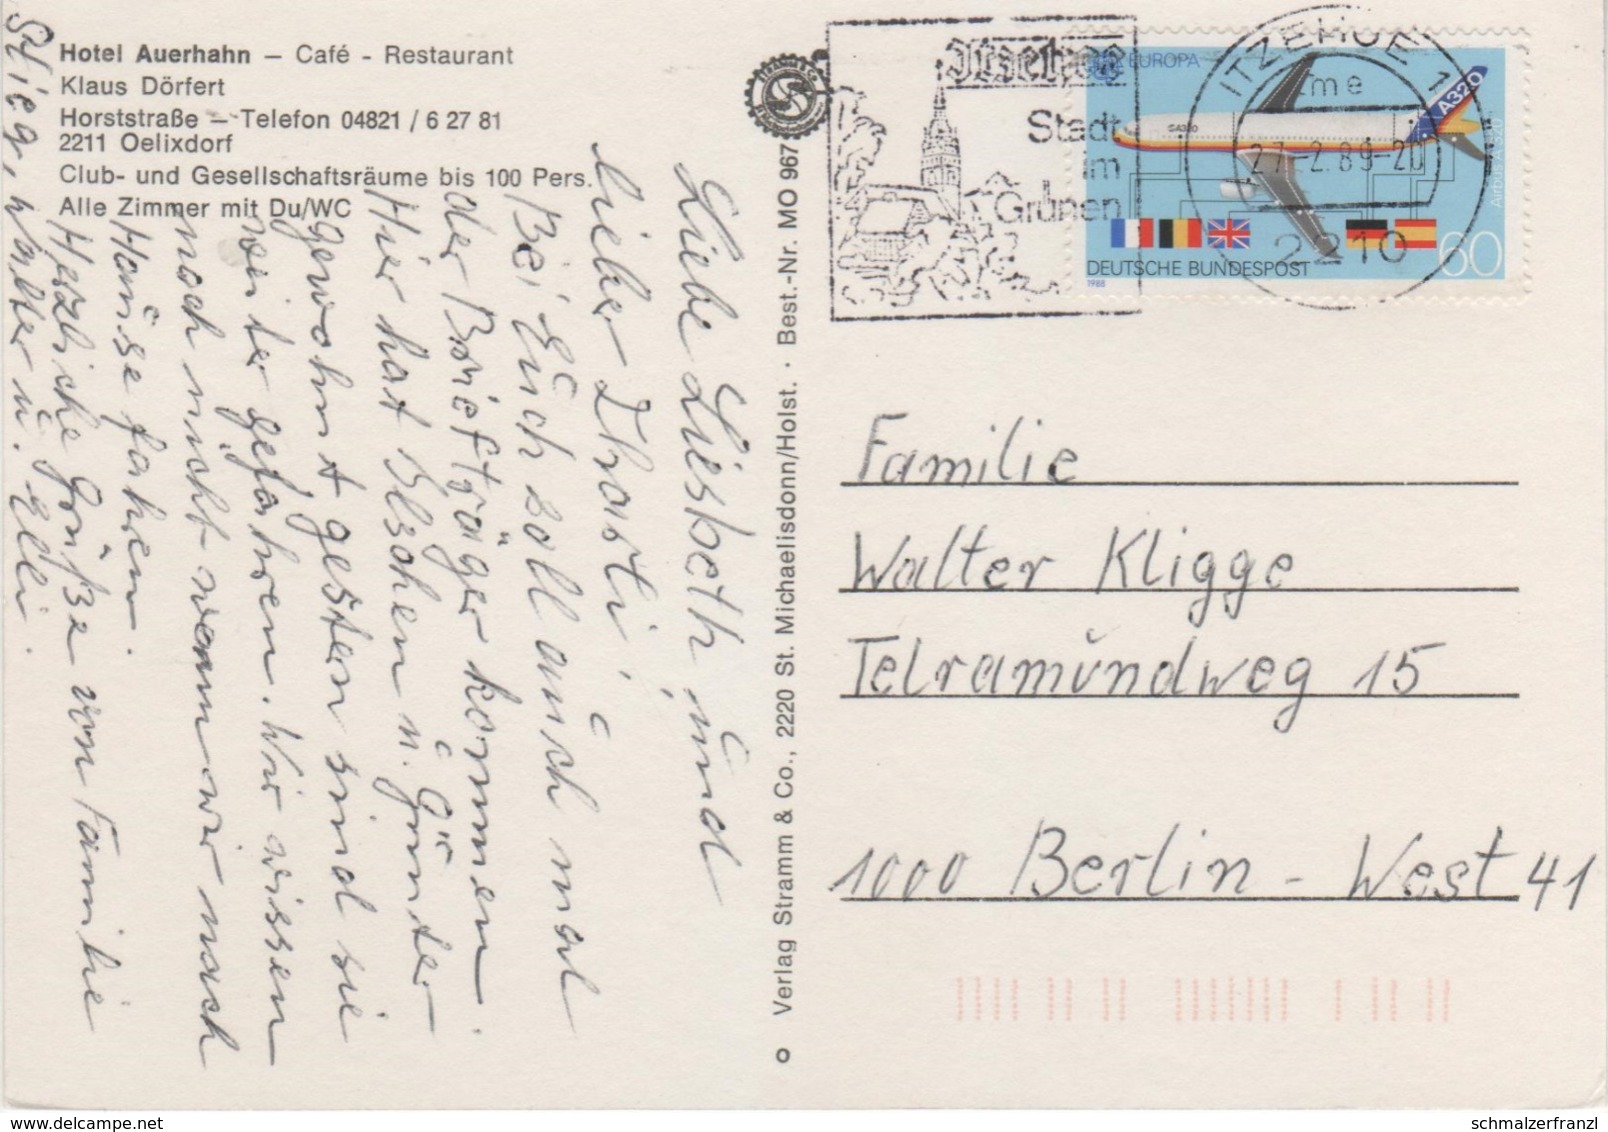 Hotel Auerhahn – Café - Restaurant
Klaus Dörfert
Horststraße – Telefon 04821 / 6 27 81
2211 Oelixdorf
Club- und Gesellschaftsräume bis 100 Pers.
Alle Zimmer mit Du/WC
Liebe Liesbeth und
lieber
Bei Euch soll auch mal
der Briefträger kommen.
Hier hat Gretchen u. Günter
gewohnt gestern sind sie
weiter gefahren. Wir wissen
noch nicht wann wir nach
Hause fahren.
Herzliche Grüße von Familie
Stieg, Walter u. Elli.
Verlag Stramm & Co., 2220 St. Michaelisdonn/Holst. · Best.-Nr. MO 967
Itzehoe
Stadt
im
Grünen
ITZEHOE 1
me
27.-2.89-20
2210
EUROPA
A320
Airbus A320
DEUTSCHE BUNDESPOST
60
1988
Familie
Walter Kligge
Telramundweg 15
1000 Berlin - West 41
schmalzerfranzl
www.delcampe.net